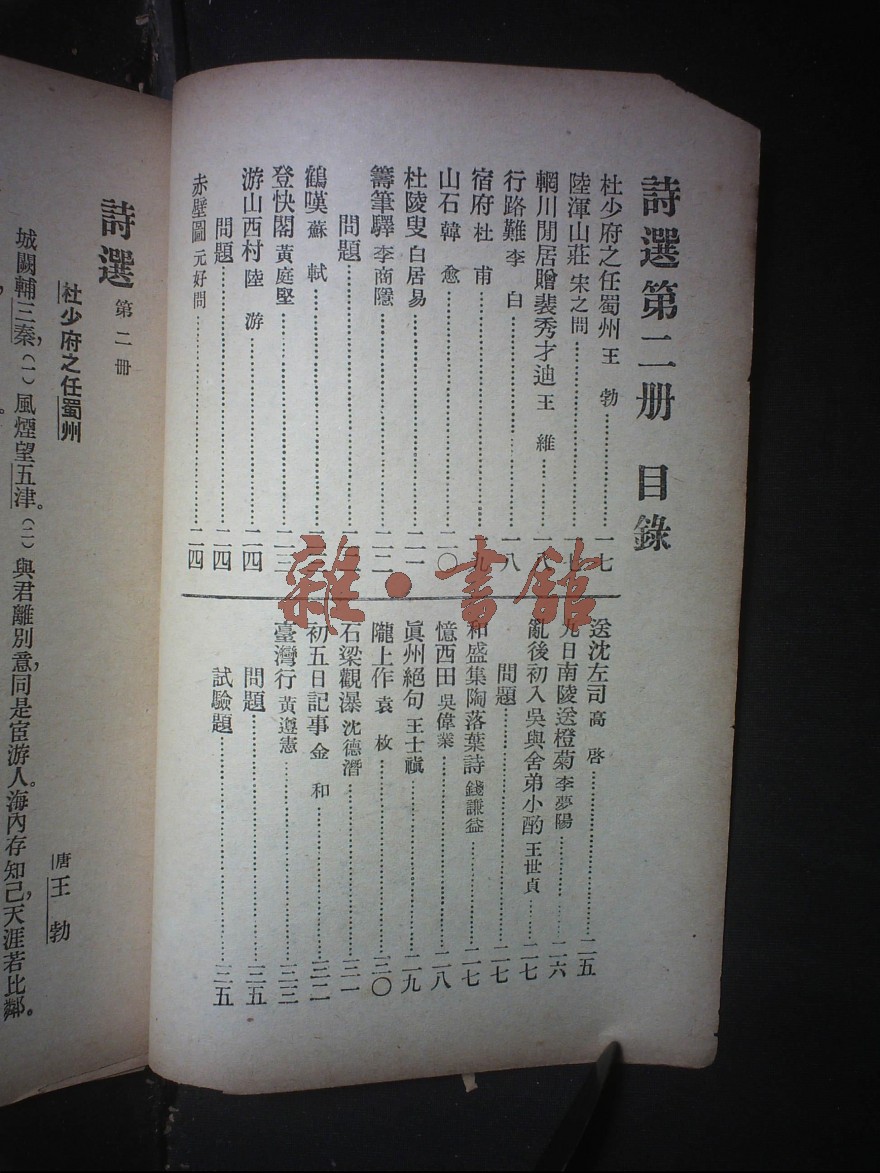 詩選第二册 目錄
杜少府之任蜀州 王勃……一七
陸渾山莊 宋之問……一七
輞川閒居贈裴秀才迪 王維……一八
行路難 李白……一八
宿府 杜甫……一九
山石 韓愈……二〇
杜陵叟 白居易……二一
籌筆驛 李商隱……二二
問題……二三
鶴嘆 蘇軾……二三
登快閣 黃庭堅……二三
游山西村 陸游……二四
問題……二四
赤壁圖 元好問……二四
送沈左司 高啓……二五
九日南陵送橙菊 李夢陽……二六
亂後初入吳與舍弟小酌 王世貞……二七
問題……二七
和盛集陶落葉詩 錢謙益……二七
憶西田 吳偉業……二八
眞州絕句 王士禎……二九
隴上作 袁枚……三〇
石梁觀瀑 沈德潛……三一
初五日記事 金和……三二
臺灣行 黃遵憲……三三
問題……三五
試驗題……三五
詩選 第二冊
杜少府之任蜀州
唐 王勃
城闕輔三秦，（一）風煙望五津。（二）與君離別意，同是宦游人。海內存知己，天涯若比鄰。
雜·書館